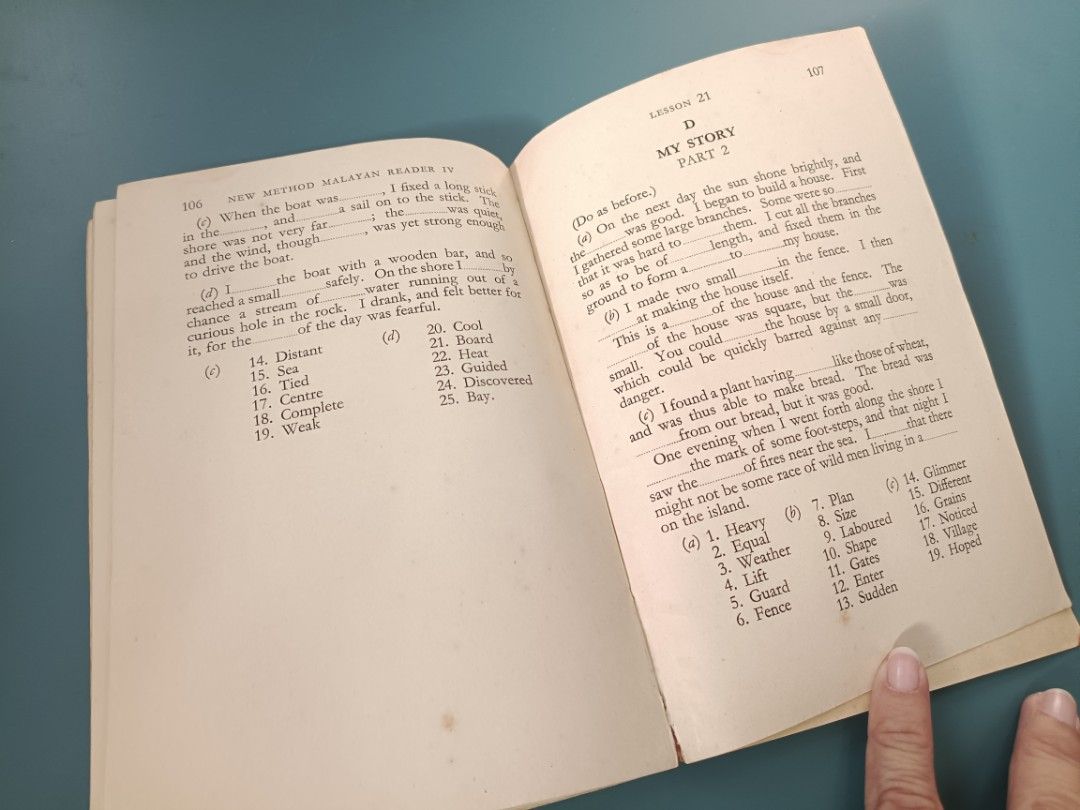 106 NEW METHOD MALAYAN READER IV
(c) When the boat was............, I fixed a long stick
in the............, and............a sail on to the stick. The
shore was not very far............; the............was quiet,
and the wind, though............, was yet strong enough
to drive the boat.
(d) I............the boat with a wooden bar, and so
reached a small............safely. On the shore I............by
chance a stream of............water running out of a
curious hole in the rock. I drank, and felt better for
it, for the............of the day was fearful.
(c) 14. Distant
15. Sea
16. Tied
17. Centre
18. Complete
19. Weak
(d) 20. Cool
21. Board
22. Heat
23. Guided
24. Discovered
25. Bay.
LESSON 21 107
D
MY STORY
PART 2
(Do as before.)
(a) On the next day the sun shone brightly, and
the............was good. I began to build a house. First
I gathered some large branches. Some were so............
that it was hard to............them. I cut all the branches
so as to be of............length, and fixed them in the
ground to form a............to............my house.
(b) I made two small............in the fence. I then
............at making the house itself.
This is a............of the house and the fence. The
............of the house was square, but the............was
small. You could............the house by a small door,
which could be quickly barred against any............
danger.
(c) I found a plant having............like those of wheat,
and was thus able to make bread. The bread was
............from our bread, but it was good.
One evening when I went forth along the shore I
............the mark of some foot-steps, and that night I
saw the............of fires near the sea. I............that there
might not be some race of wild men living in a............
on the island.
(a) 1. Heavy
2. Equal
3. Weather
4. Lift
5. Guard
6. Fence
(b) 7. Plan
8. Size
9. Laboured
10. Shape
11. Gates
12. Enter
13. Sudden
(c) 14. Glimmer
15. Different
16. Grains
17. Noticed
18. Village
19. Hoped